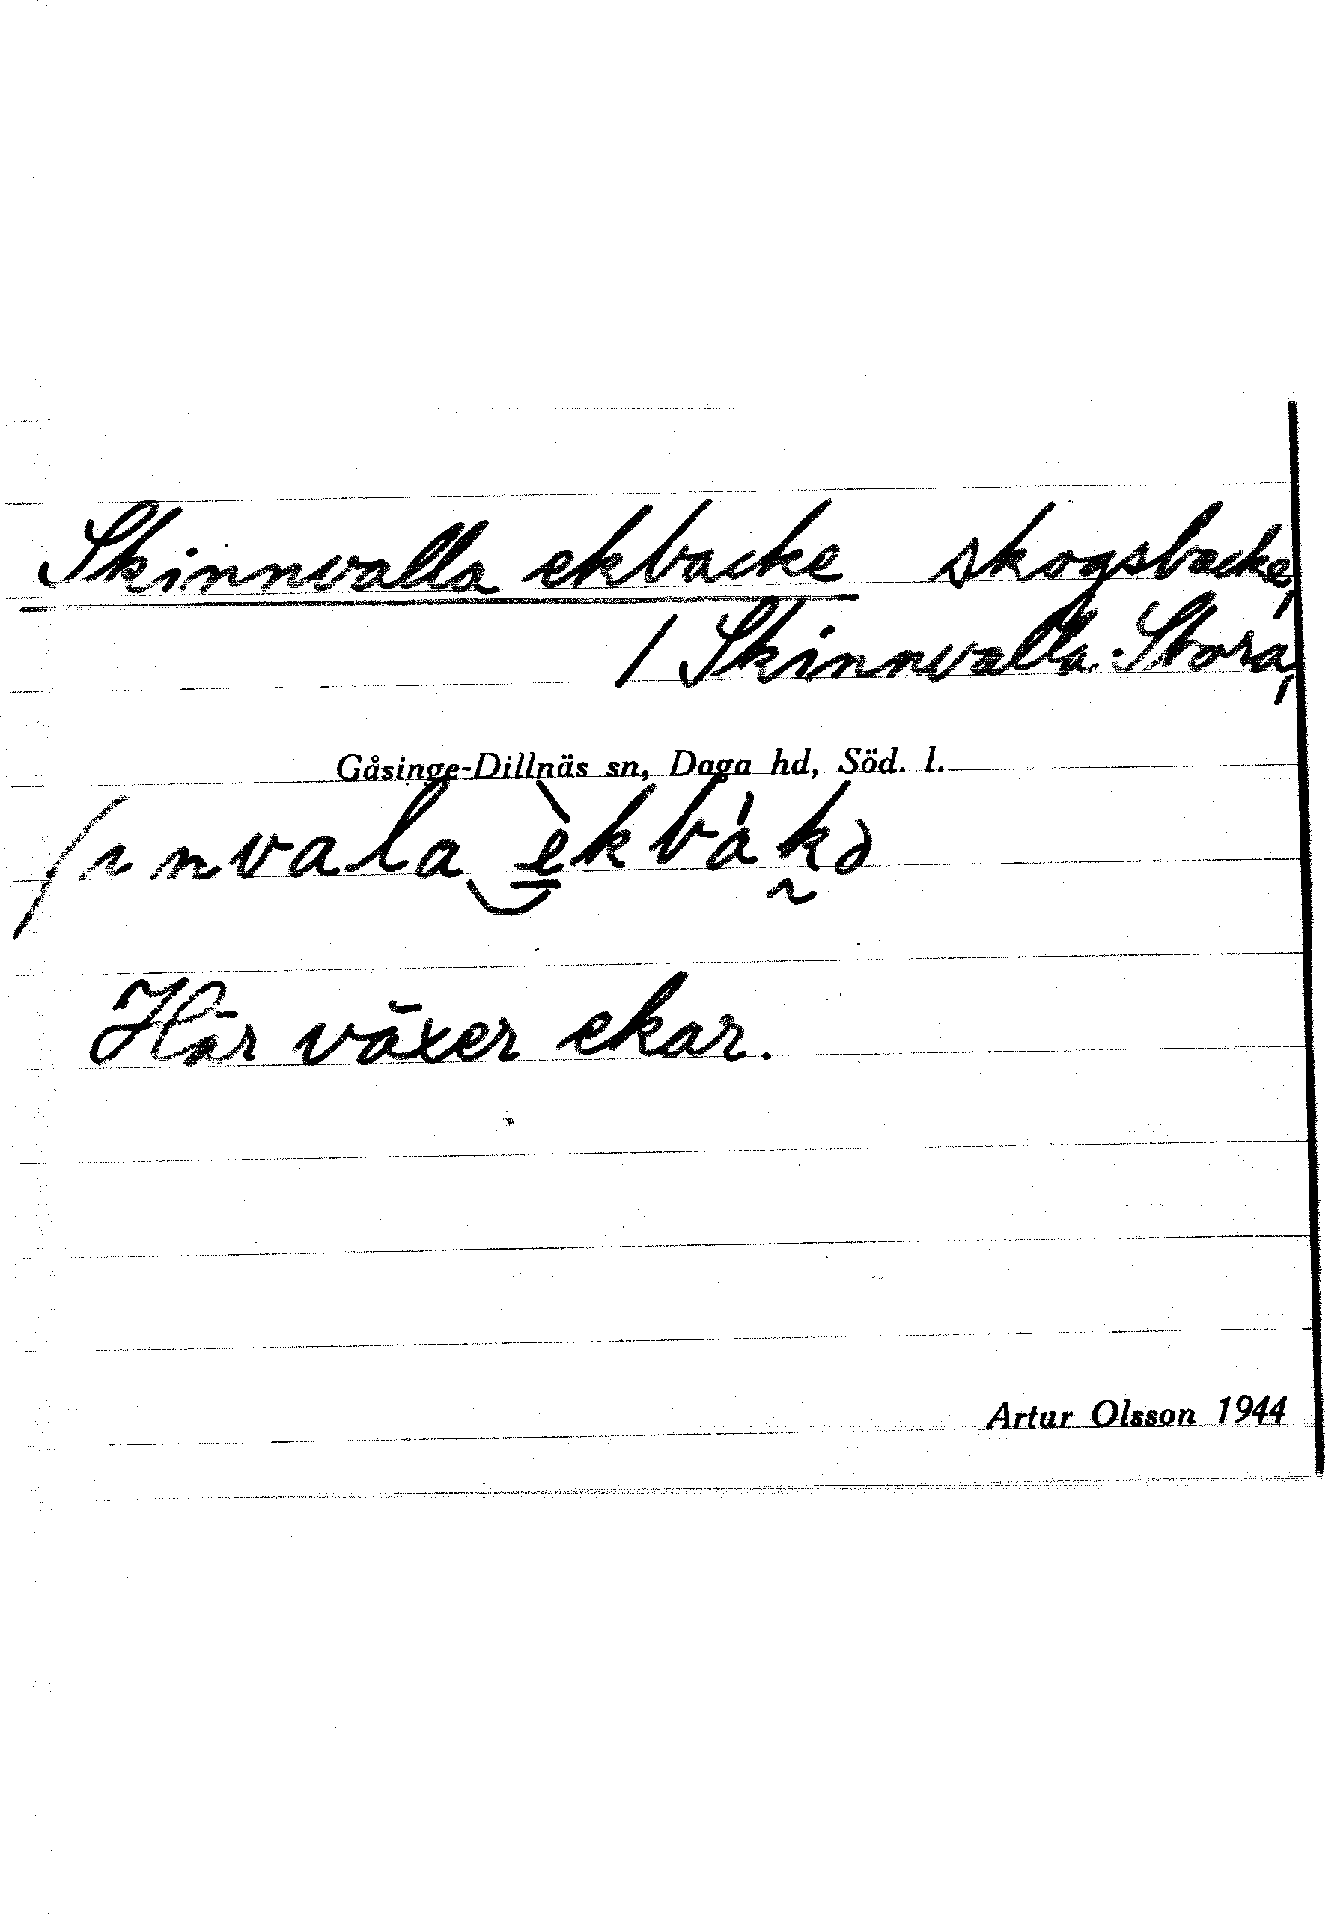 Skinnvalla ekbacke skogsbacke,
/ Skinnvalla. Stora,
Gåsinge-Dillnäs sn, Daga hd, Söd. l.
ʃınvala‿èkbákə
Här växer ekar.
Artur Olsson 1944